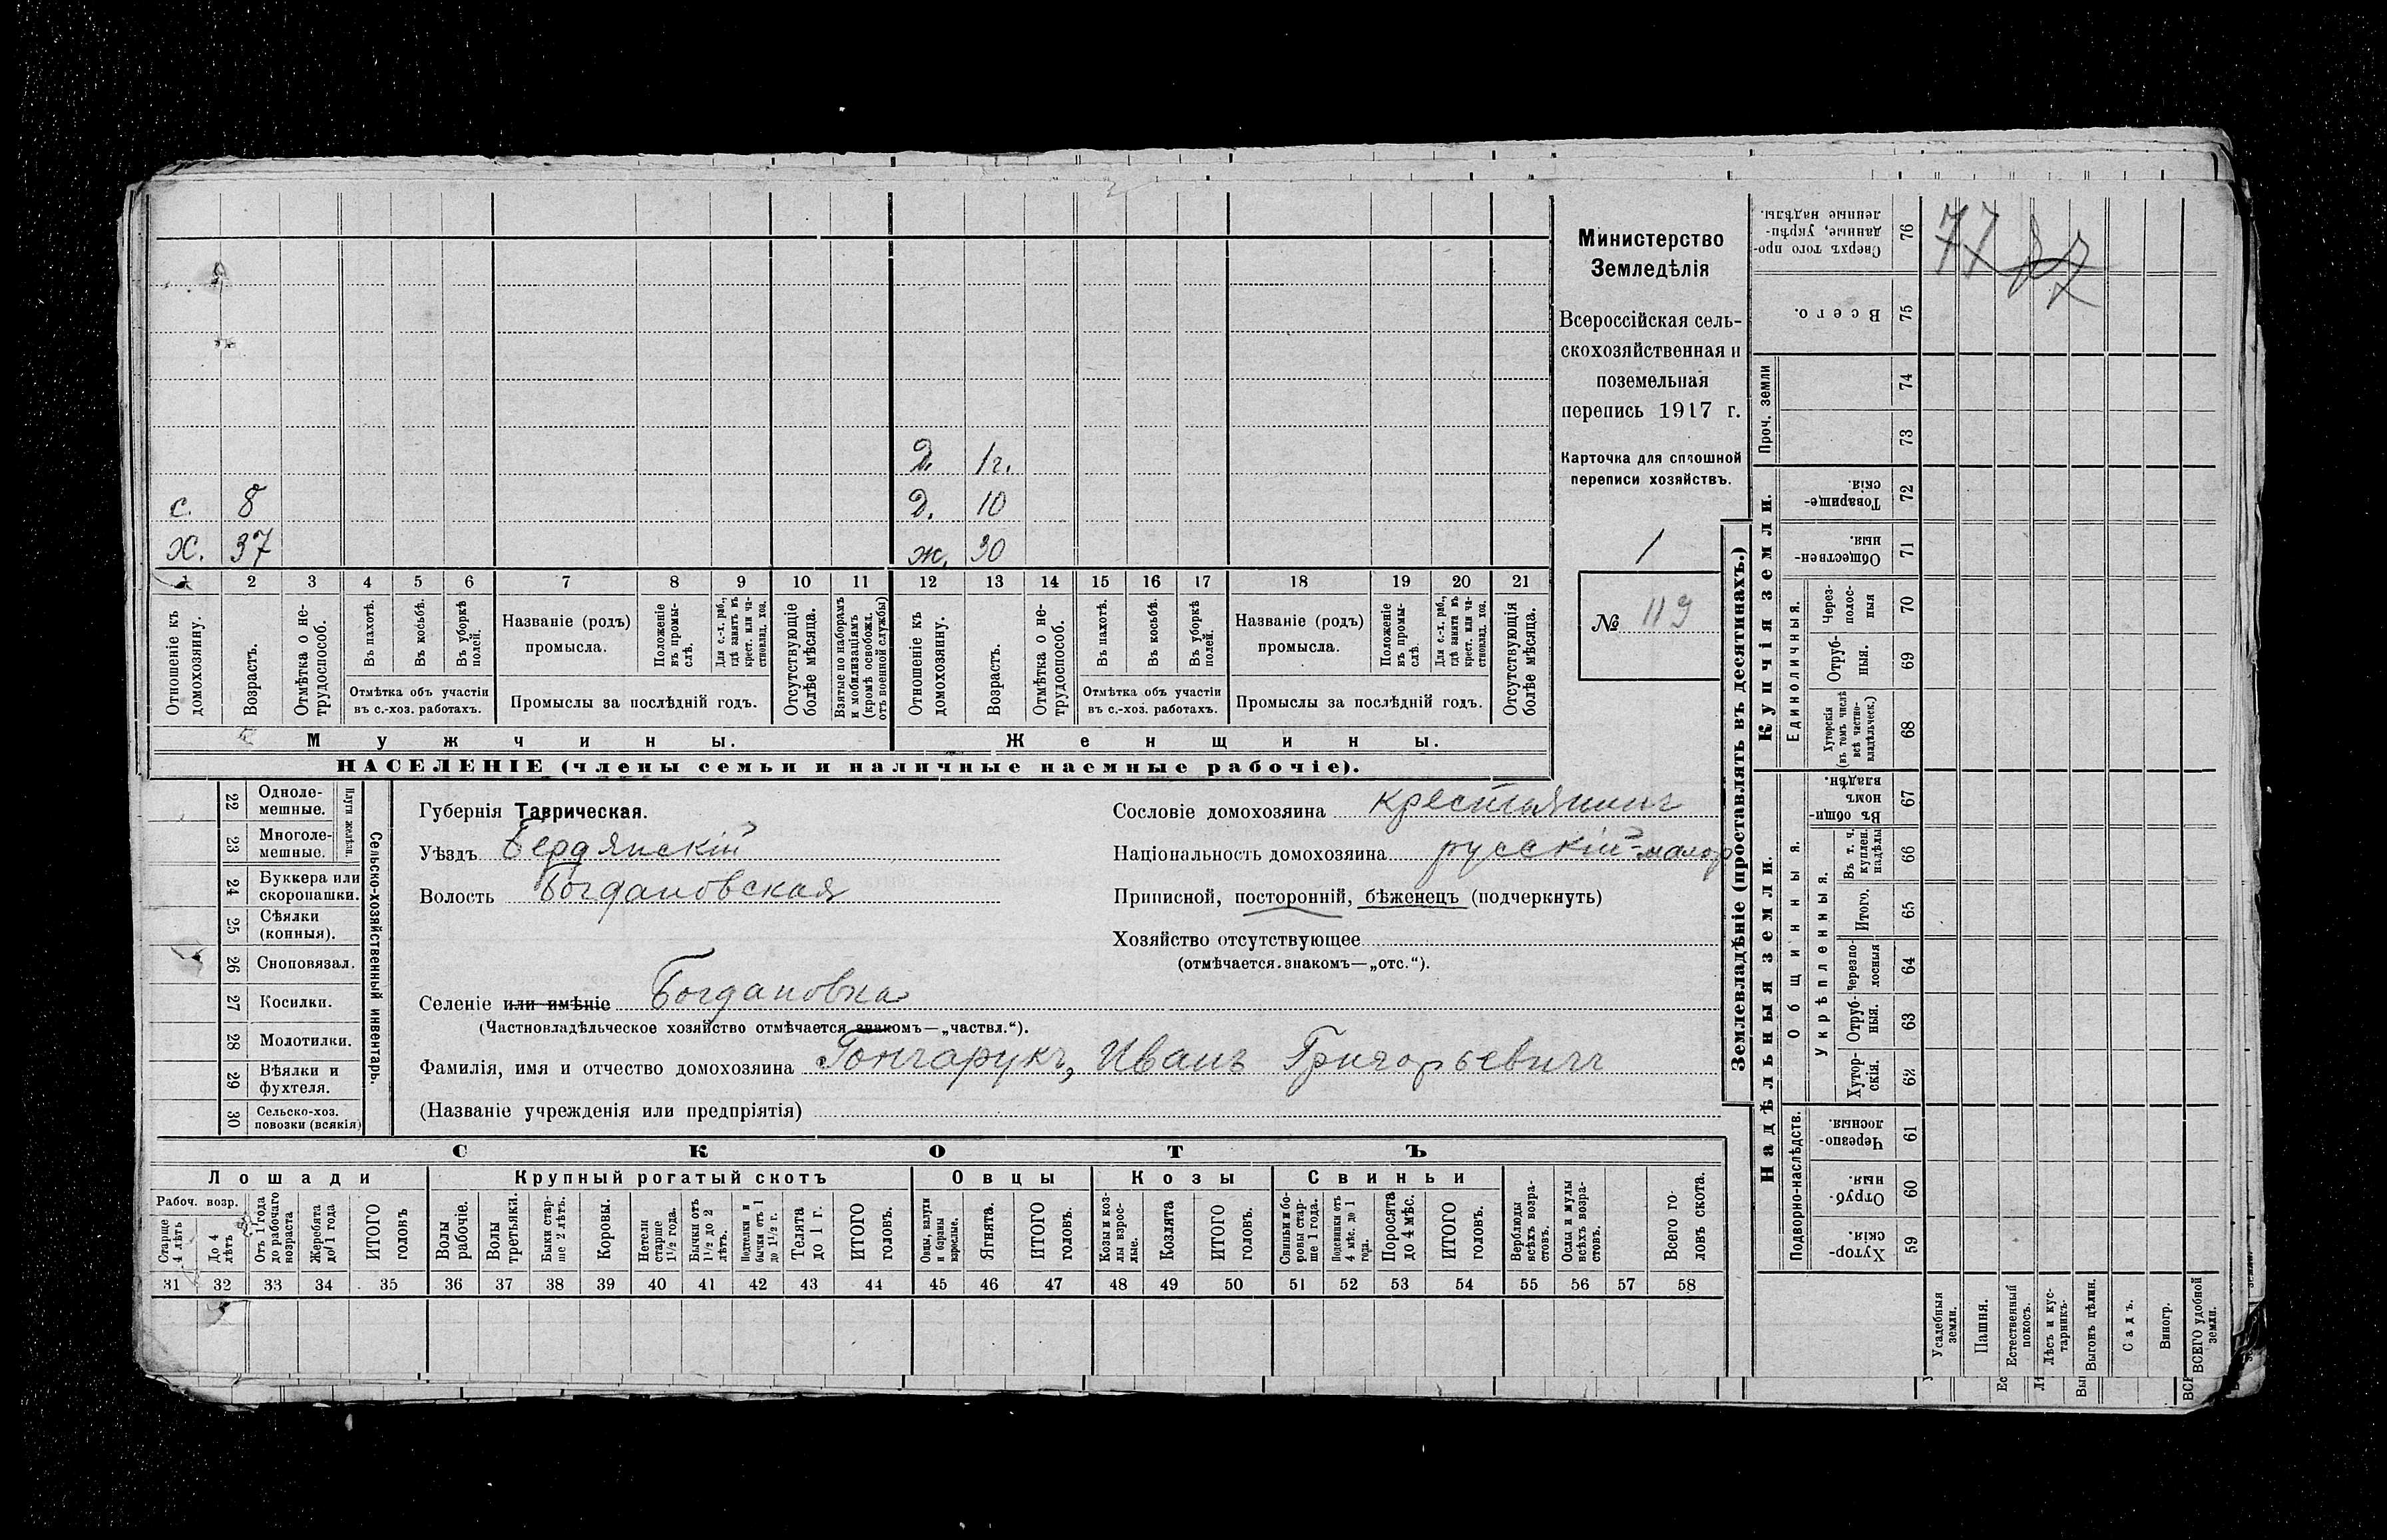 Министерство
Земледѣлія
Всероссійская сель-
скохозяйственная и
поземельная
перепись 1917 г.
Карточка для сплошной
переписи хозяйствъ.
1
№ 119
Д. 1 г.
с. 8 Д. 10
Х. 37 ж. 30
1 2 3 4 5 6 7 8 9 10 11 12 13 14 15 16 17 18 19 20 21
Отношеніе къ домохозяину.
Возрастъ.
Отмѣтка о не-трудоспособ.
Въ пахотѣ.
Въ косьбѣ.
Въ уборкѣ полей.
Отмѣтка объ участіи
въ с.-хоз. работахъ.
Названіе (родъ)
промысла.
Положеніе въ промы-слѣ.
Для с.-х. раб., гдѣ занятъ въ крест. или ча-стновлад. хоз.
Промыслы за послѣдній годъ.
Отсутствующіе болѣе мѣсяца.
Взятые по наборамъ и мобилизаціямъ (кромѣ освобожд. отъ военной службы)
Отношеніе къ домохозяину.
Возрастъ.
Отмѣтка о не-трудоспособ.
Въ пахотѣ.
Въ косьбѣ.
Въ уборкѣ полей.
Отмѣтка объ участіи
въ с.-хоз. работахъ.
Названіе (родъ)
промысла.
Положеніе въ промы-слѣ.
Для с.-х. раб., гдѣ занята въ крест. или ча-стновлад. хоз.
Промыслы за послѣдній годъ.
Отсутствующія болѣе мѣсяца.
Мужчины. Женщины.
НАСЕЛЕНІЕ (члены семьи и наличные наемные рабочіе).
Сельско-хозяйственный инвентарь.
Плуги желѣзн.
22 Одноле-мешные.
23 Многоле-мешные.
24 Буккера или скоропашки.
25 Сѣялки (конныя).
26 Сноповязал.
27 Косилки.
28 Молотилки.
29 Вѣялки и фухтеля.
30 Сельско-хоз. повозки (всякія)
Губернія Таврическая.
Уѣздъ Бердянскій
Волость Богдановская
Сословіе домохозяина крестьянинъ
Національность домохозяина русскій-малор
Приписной, посторонній, бѣженецъ (подчеркнуть)
Хозяйство отсутствующее
(отмѣчается знакомъ—„отс.“).
Селеніе или имѣніе Богдановка
(Частновладѣльческое хозяйство отмѣчается знакомъ—„частвл.“).
Фамилія, имя и отчество домохозяина Гончарукъ, Иванъ Григорьевичъ
(Названіе учрежденія или предпріятія)
СКОТЪ
Лошади Крупный рогатый скотъ Овцы Козы Свиньи
Рабоч. возр.
Старше 4 лѣтъ
До 4 лѣтъ
Отъ 1 года до рабочаго возраста
Жеребята до 1 года
ИТОГО головъ
Волы рабочіе.
Волы третьяки.
Быки стар-ше 2 лѣтъ.
Коровы.
Нетели старше 1½ года.
Бычки отъ 1½ до 2 лѣтъ.
Подтелки и бычки отъ 1 до 1½ г.
Телята до 1 г.
ИТОГО головъ.
Овцы, валухи и бараны взрослые.
Ягнята.
ИТОГО головъ.
Козы и коз-лы взрос-лые.
Козлята
ИТОГО головъ.
Свиньи и бо-ровы стар-ше 1 года.
Подсвинки отъ 4 мѣс. до 1 года.
Поросята до 4 мѣс.
ИТОГО головъ.
Верблюды всѣхъ возра-стовъ.
Ослы и мулы всѣхъ возра-стовъ.
Всего го-ловъ скота.
31 32 33 34 35 36 37 38 39 40 41 42 43 44 45 46 47 48 49 50 51 52 53 54 55 56 57 58
Землевладѣніе (проставлять въ десятинахъ.)
Купчія земли.
Надѣльныя земли.
Сверхъ того про-данные, укрѣп-ленные надѣлы. 76
77
Всего. 75
Проч. земли
74
73
Товарище-скія. 72
Обществен-ныя. 71
Единоличныя.
Через-полос-ныя 70
Отруб-ныя. 69
Хуторскія (въ томъ числѣ всѣ частно-владѣльческ.) 68
Общинныя.
Въ общин-номъ владѣн. 67
Укрѣпленныя.
Въ т. ч. куплен. надѣлы 66
Итого. 65
Черезпо-лосныя 64
Отруб-ныя. 63
Хутор-скія. 62
Подворно-наслѣдств.
Черезпо-лосныя. 61
Отруб-ныя. 60
Хутор-скія. 59
Усадебныя земли.
Пашня.
Естественный покосъ.
Лѣсъ и кус-тарникъ.
Выгонъ цѣлин.
Садъ.
Виногр.
ВСЕГО удобной земли.